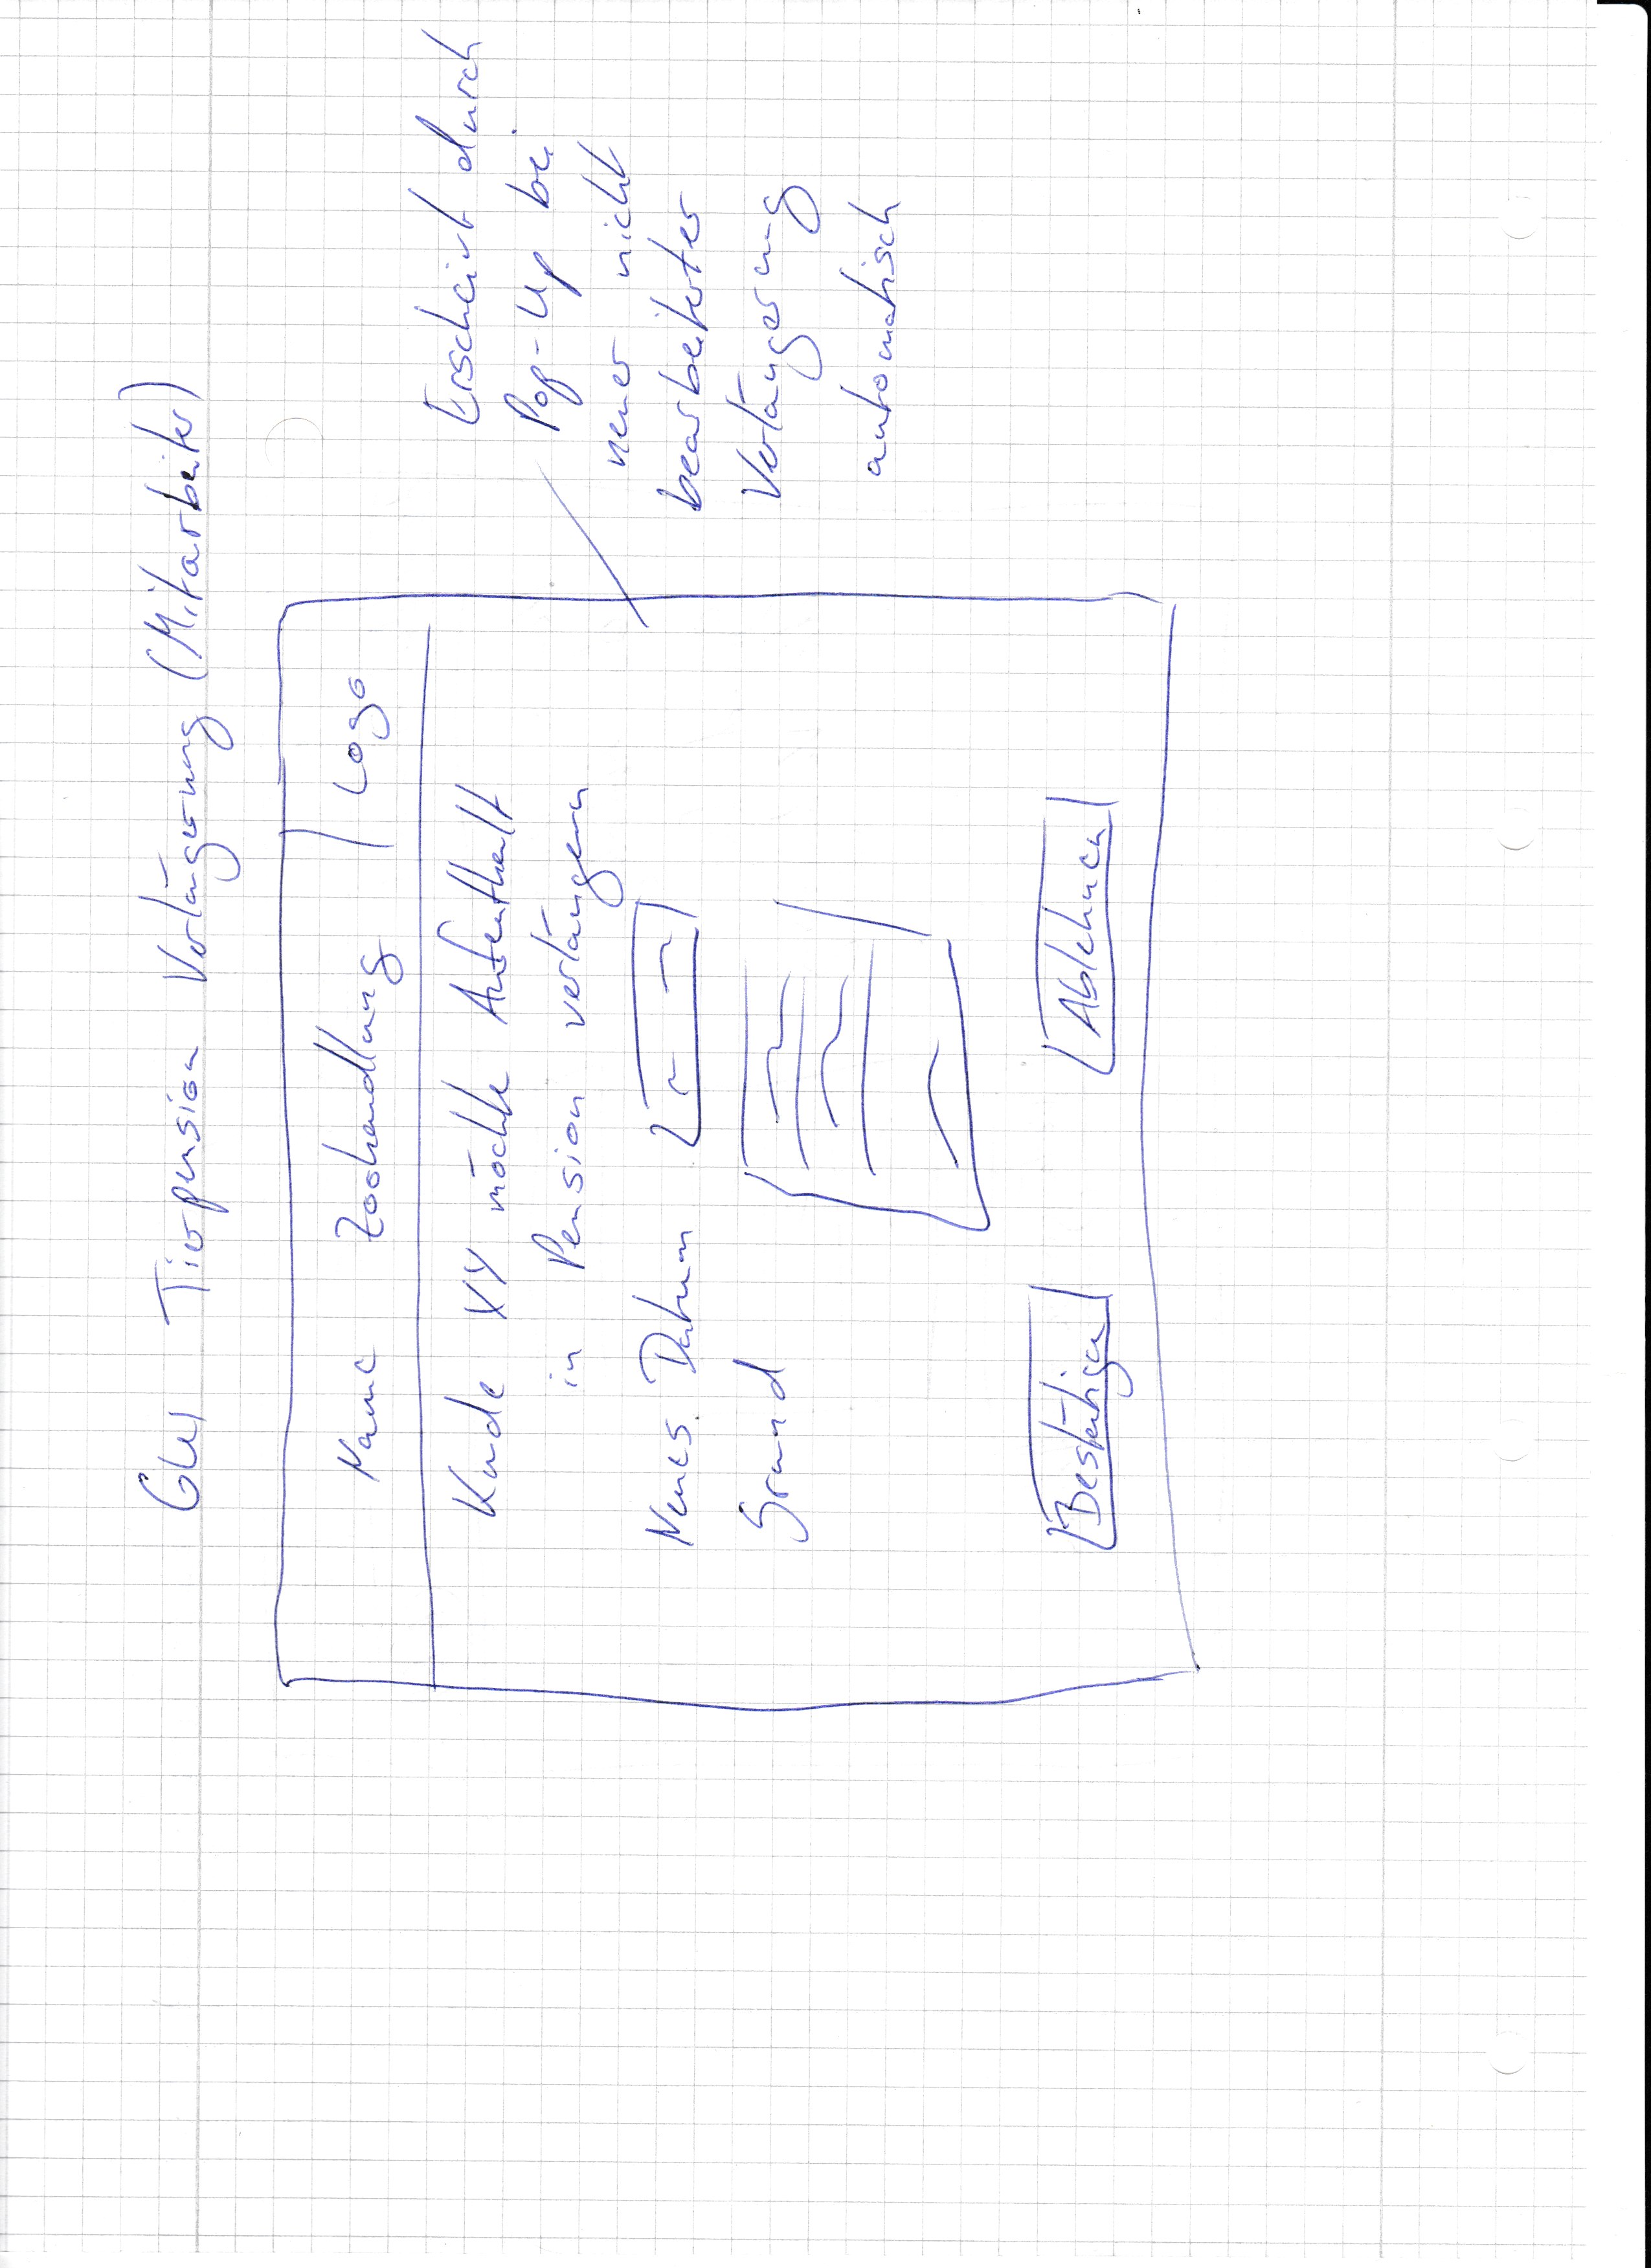 GUI Tierpension Verlängerung (Mitarbeiter)
Name Zoohandlung | Logo
Kunde XY möchte Aufenthalt
in Pension verlängern
Neues Datum
Grund
Bestätigen
Ablehnen
Erscheint durch
Pop-Up bei
neuer nicht
bearbeiteter
Verlängerung
automatisch